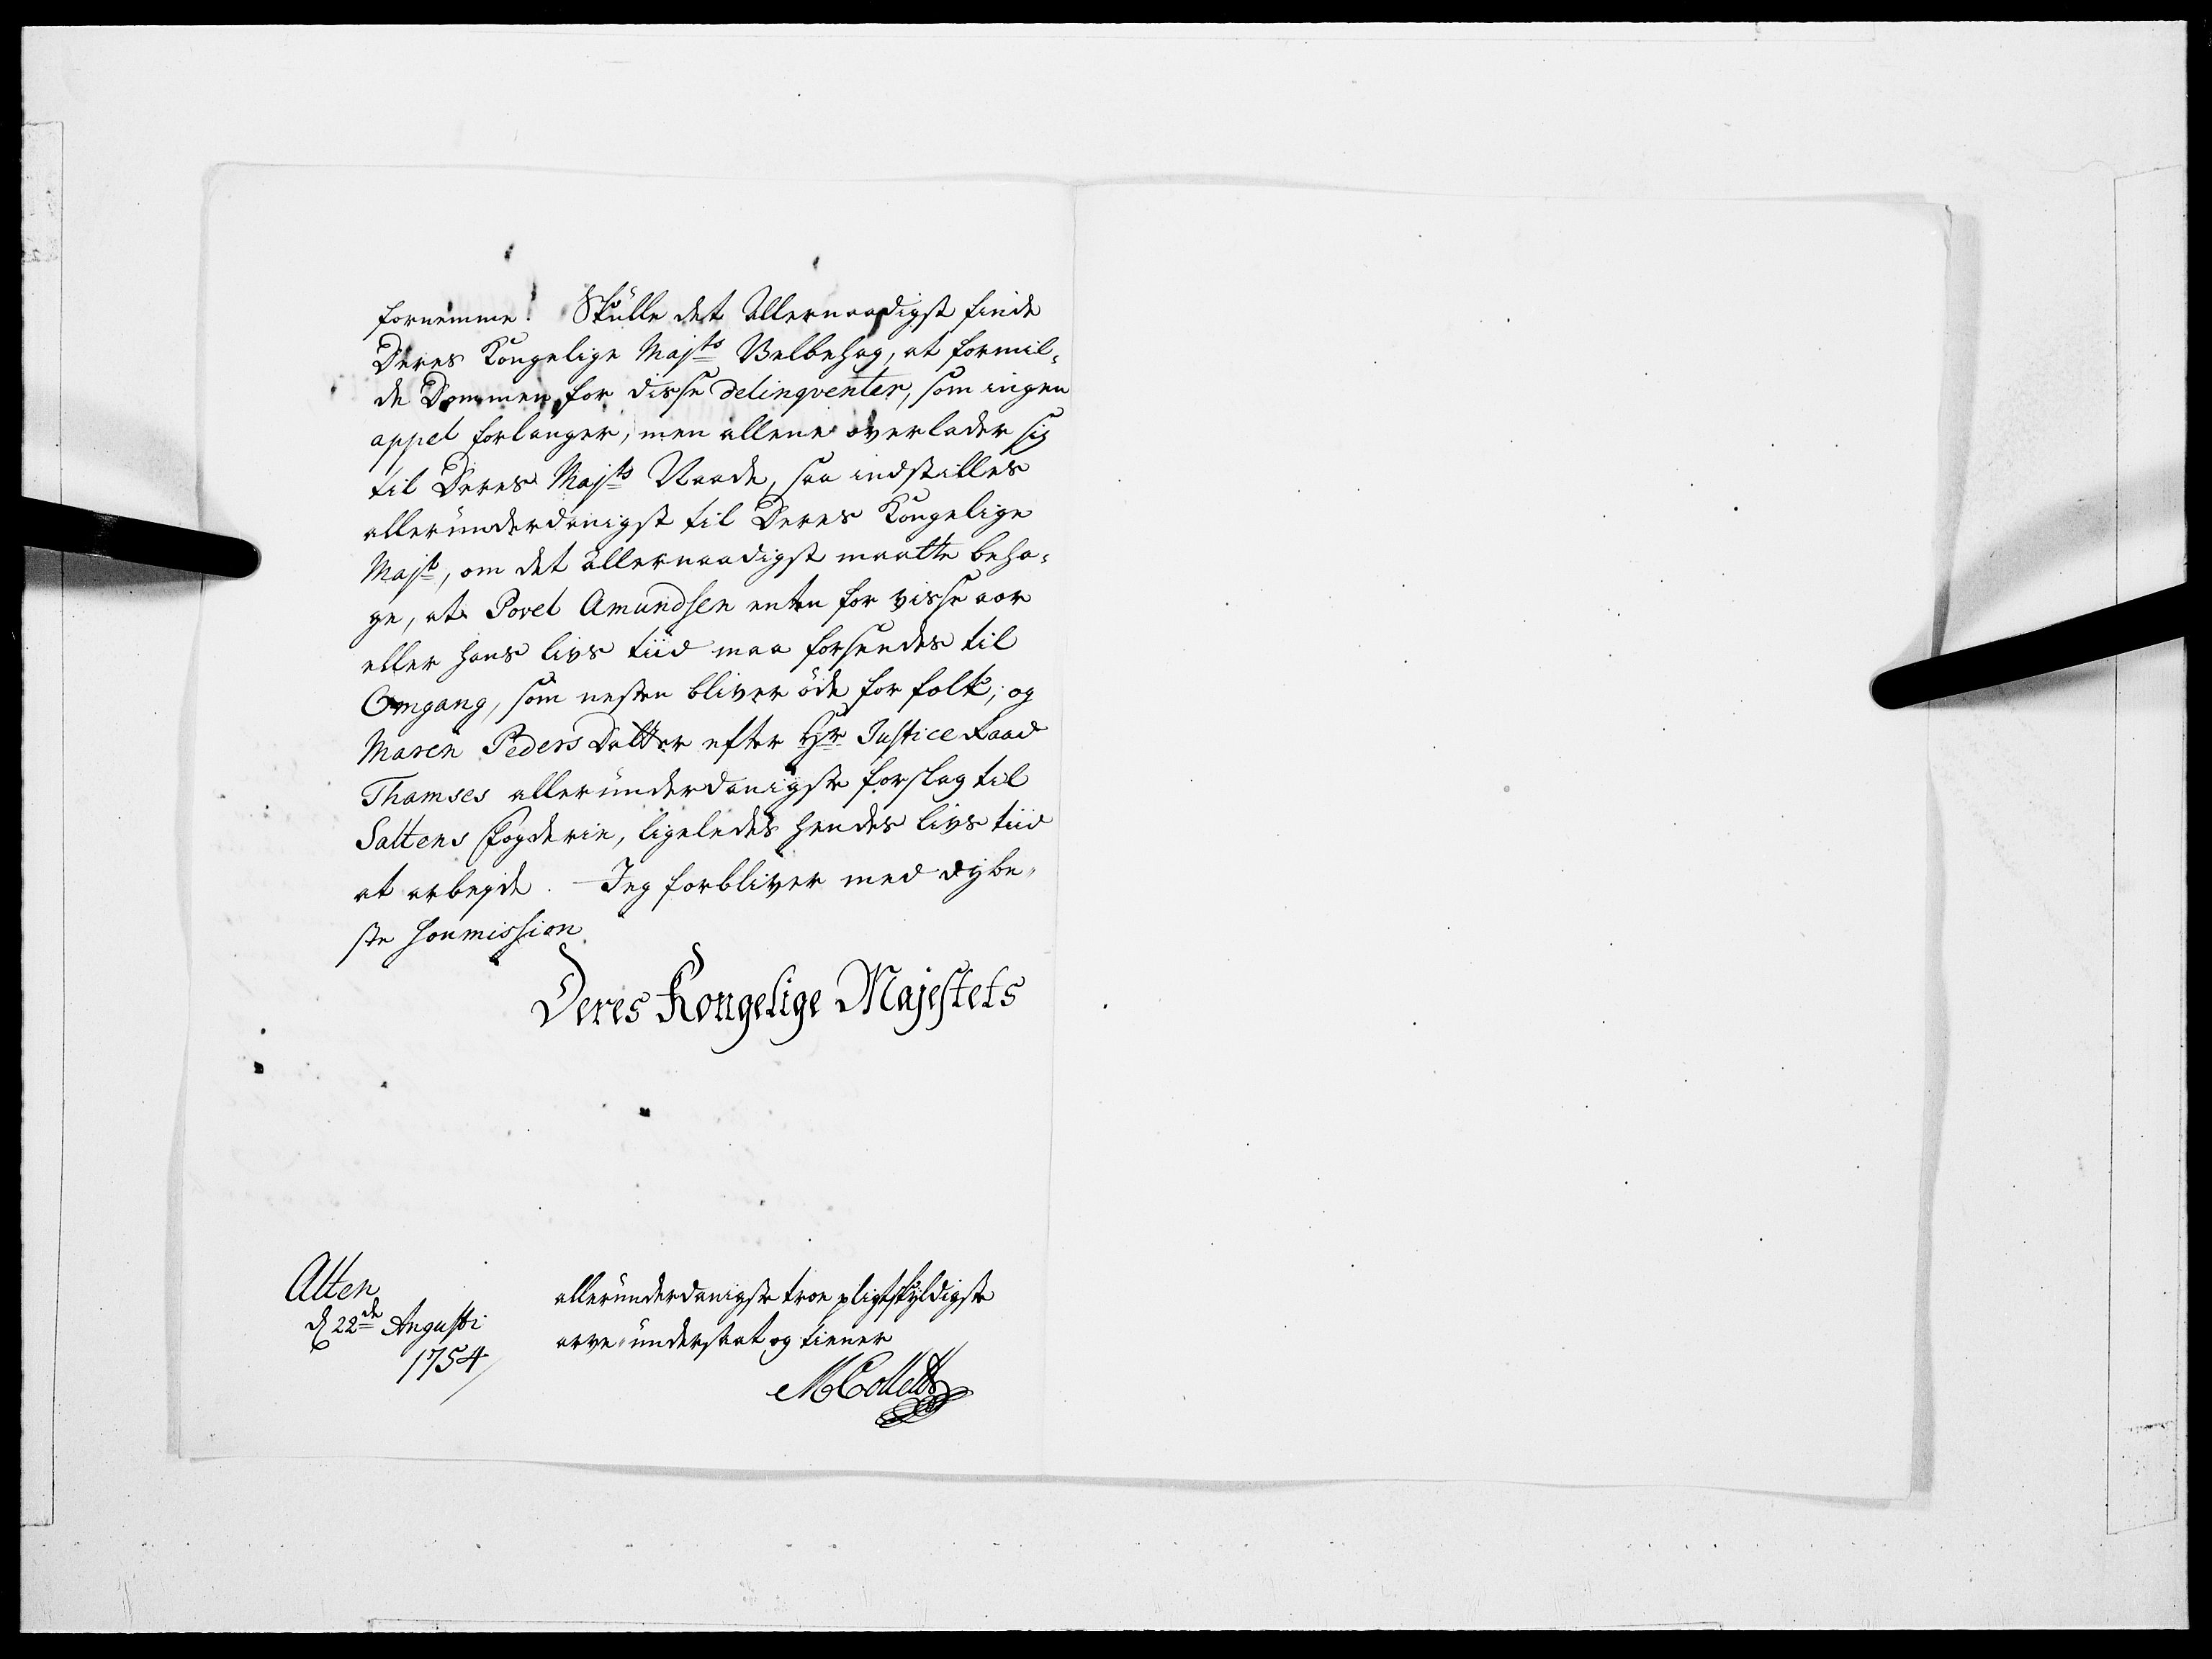 fornemme. Skulle det Allernaadigst finde
Deres Kongelige Majts Velbehag, at formil-
de Dommen for disse delinqventer, som ingen
appel forlanger, men allene overlader sig
til Deres Majts Naade, saa indstilles
allerunderdanigst til Deres Kongelige
Majt, om det allernaadigst maatte beha-
ge, at Povel Amundsen enten for visse aar
eller hans livs tiid maa forsendes til
Omgang, som nesten bliver öde for folk; og
Maren Peders Datter efter Hr Justice Raad
Thamses allerunderdanigste forslag til
Saltens fogderie, ligeledes hendes livs tiid
at arbejde. Jeg forbliver med dybe-
ste soumission
Deres Kongelige Majestets
Alten
d 22de Augusti
1754
allerunderdanigste troe pligtskyldigste
arve-undersaat og tiener
MCollett